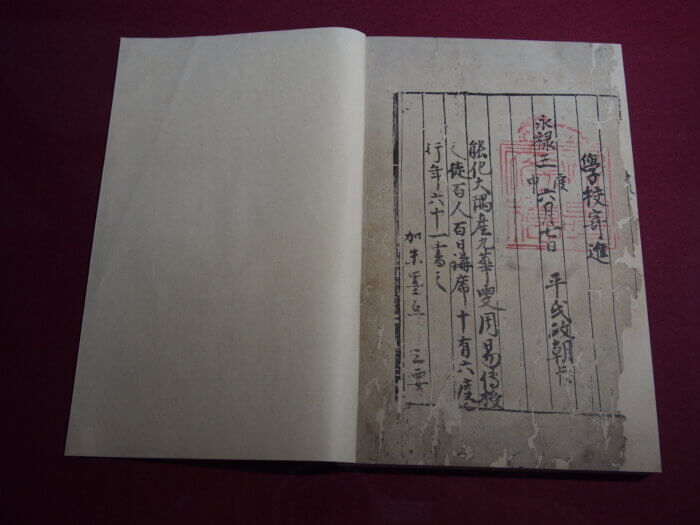 學校寄進
永禄三庚申六月七日 平氏政朝臣
能化大隅産九華叟周易傳授
之徒百人百日講席十有六度
行年六十一書之
加朱墨點 三要